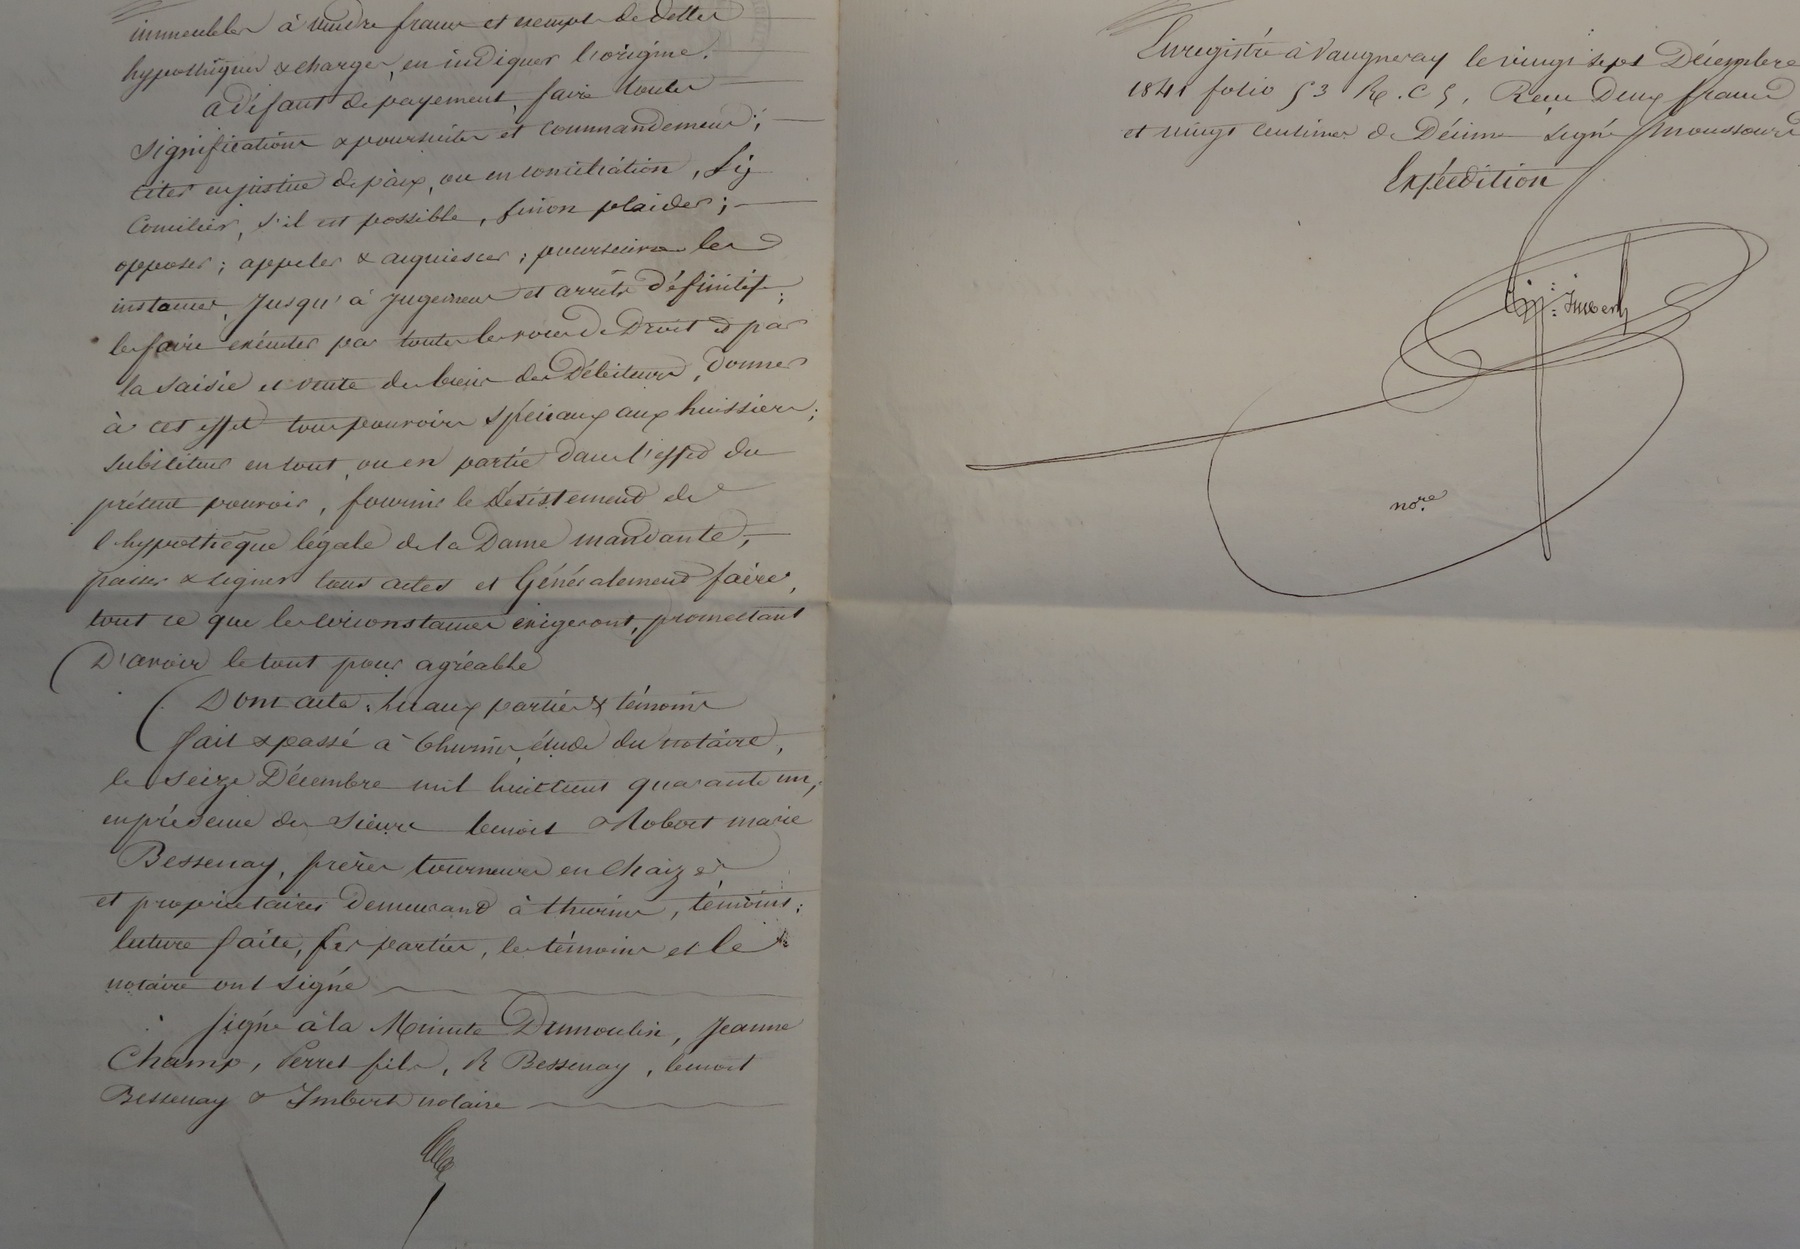 immeubles à vendre francs et exempts de dettes
hypothèques & charges, en indiquer l'origine.
a défaut de payement, faire toutes
significations & poursuites et commandemens;
citer en justice de paix, ou en conciliation, s'y
concilier, s'il est possible, sinon plaider;
opposer; appeler & acquiescer; poursuivre les
instances, jusqu'à jugemens et arrêts définitifs;
les faire exécuter par toutes les voies de Droit et par
la saisie et vente des biens des Débiteurs, donner
à cet effet tous pouvoirs spéciaux aux huissiers;
substituer en tout, ou en partie dans l'effet du
présent pouvoir, fournir le Désistement de
l'hypothèque légale de la Dame mandante,
passer & signer tous actes et Généralement faire,
tout ce que les circonstances exigeront, promettant
D'avoir le tout pour agréable
Dont acte. lu aux parties & témoins
fait & passé à thurins, étude du notaire,
le seize Décembre mil huit cent quarante un,
en présence des sieurs benoit & Robert marie
Bessenay, frères tourneurs en chaizes
et propriétaires Demeurant à thurins, témoins;
lecture faite, les parties, les témoins et le
notaire ont signé
signé à la Minute Dumoulin, Jeanne
Champ, Perret fils, R Bessenay, benoit
Bessenay & Imbert notaire
Enregistré à Vaugneray le vingt sept Décembre
1841 folio 53 Ro. C 5, Reçu Deux francs
et vingt centimes de Décime signé
Expédition
Imbert
no.re